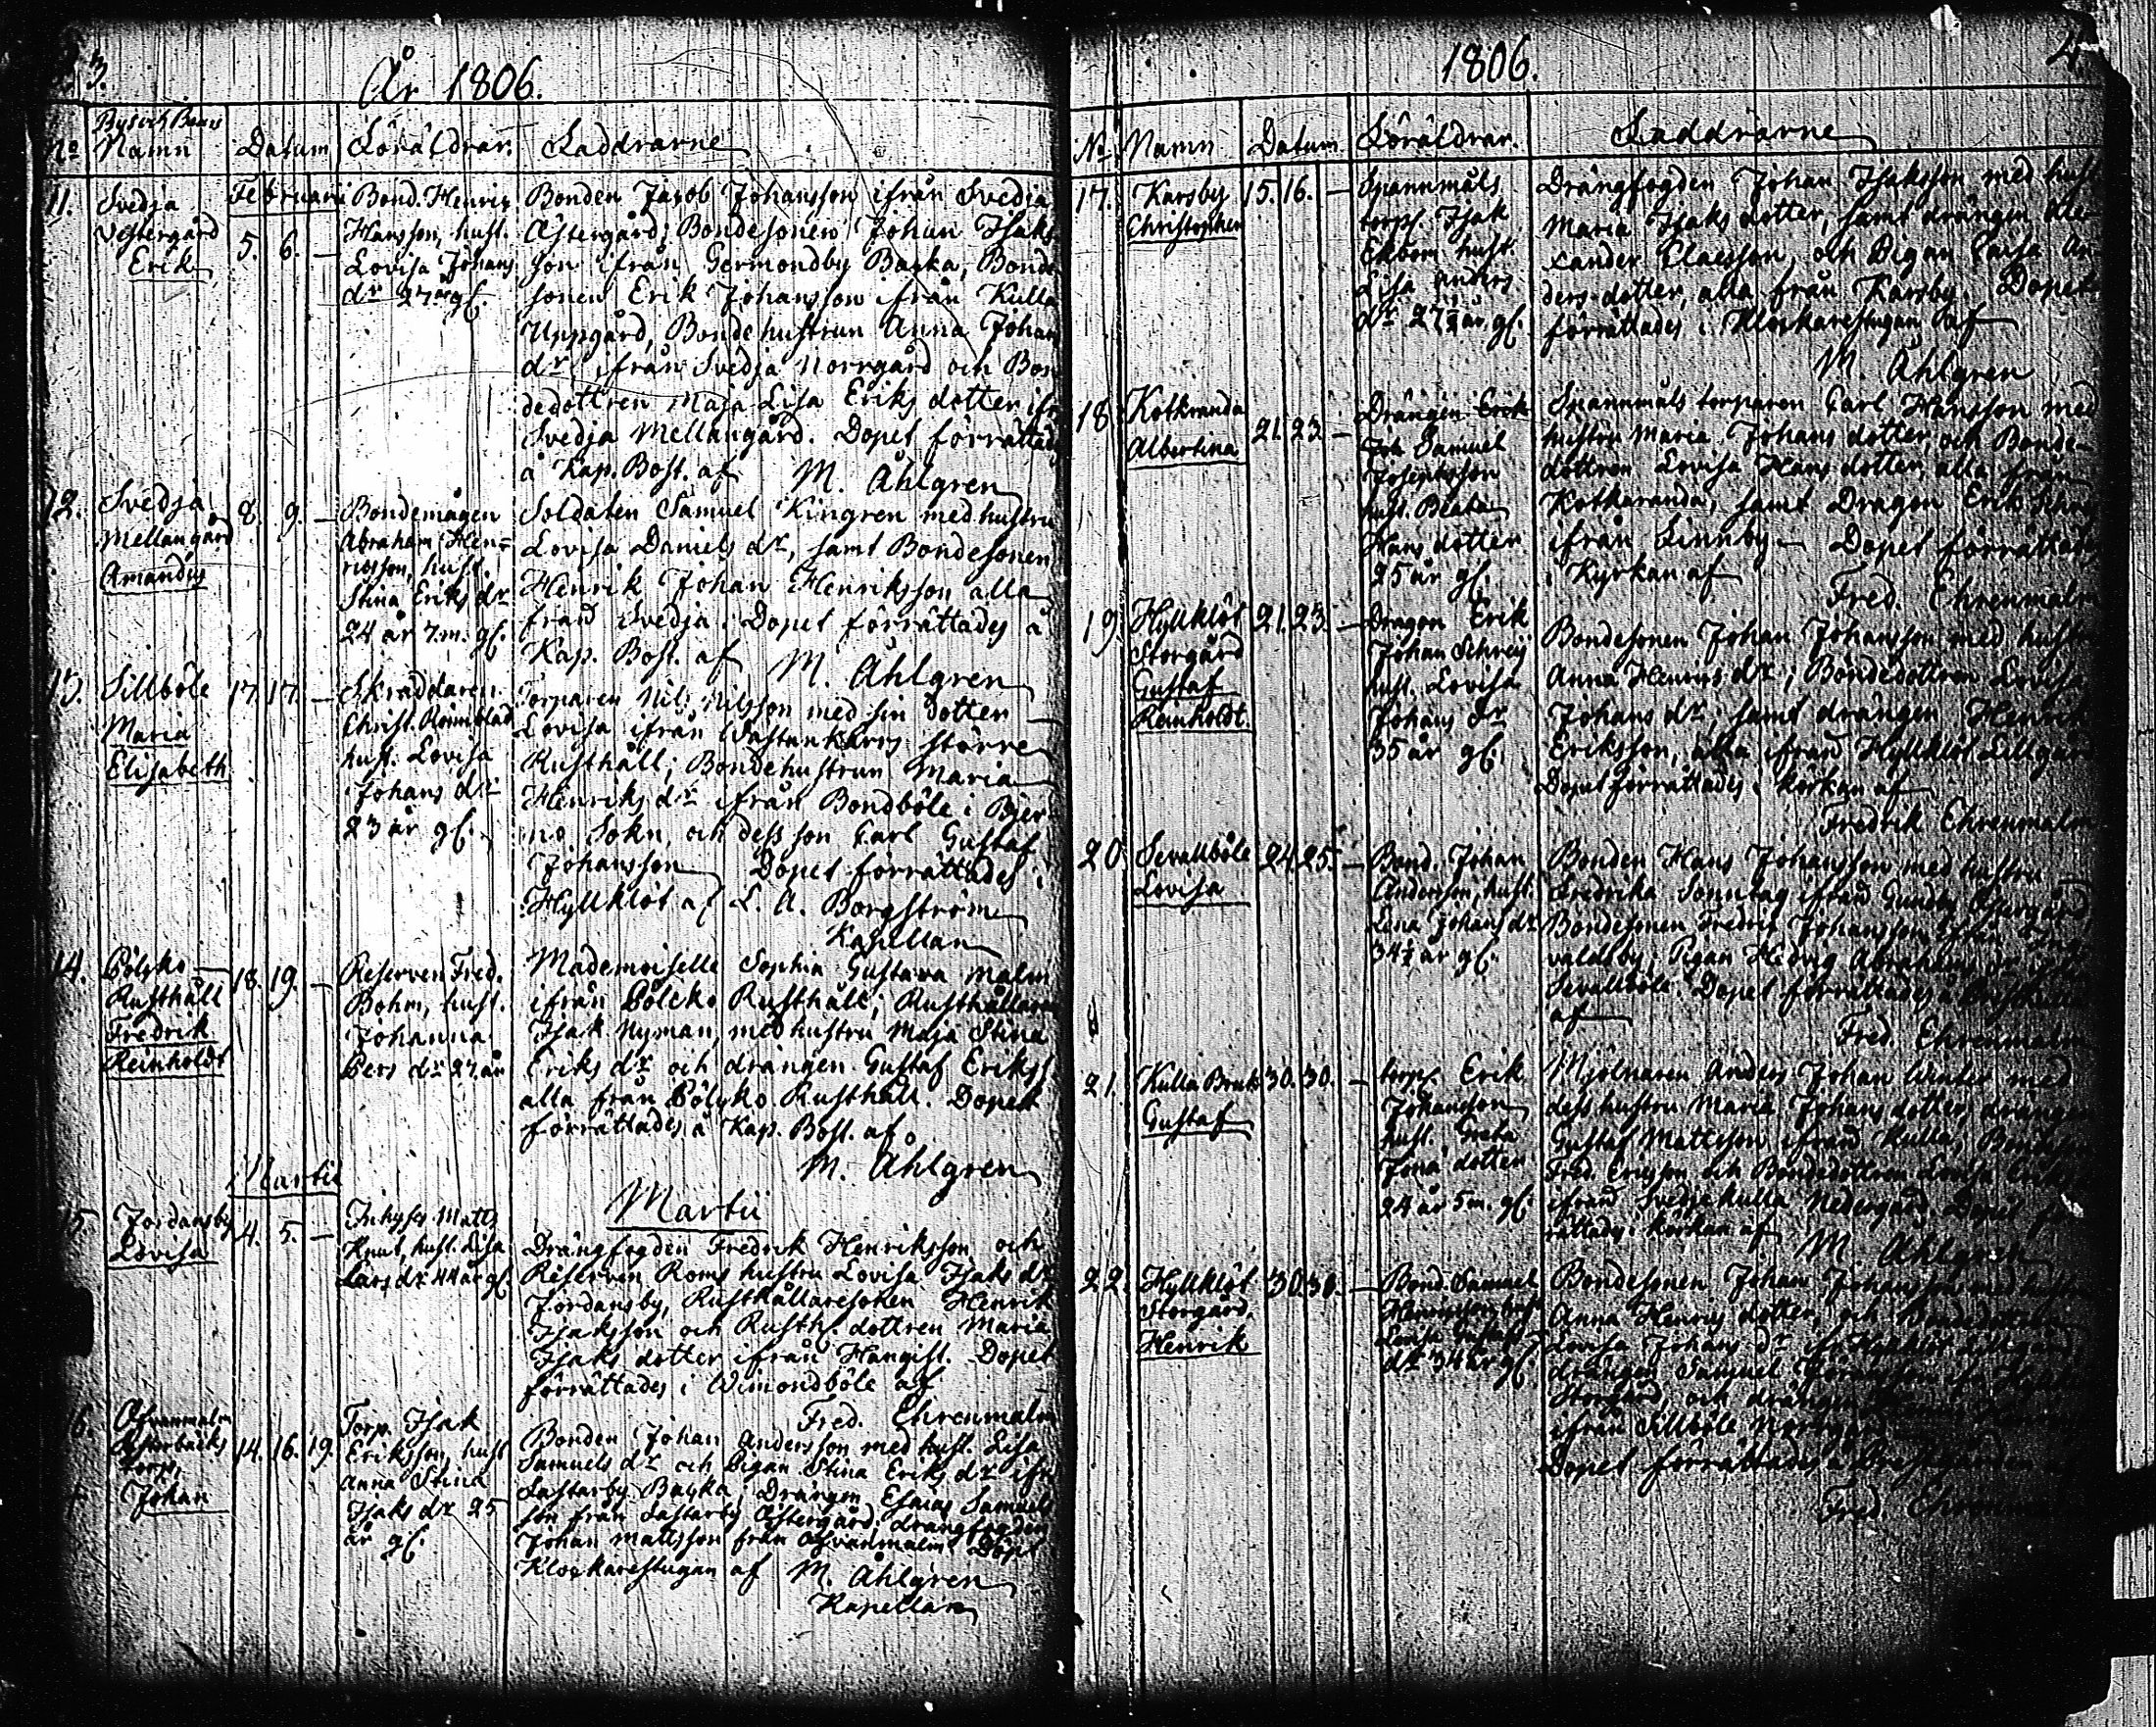 3.
År 1806.
Bys och Barns
No Namn Datum Föräldrar. Faddrarne
Februarii
11. Svedja
Västergård
Erik
5. 6. —
Bond. Henric
Hansson, hust.
Lovisa Johans
dr 27 år gl.
Bonden Jacob Johansson ifrån Svedja
Östergård; Bondesonen Johan Isaks
son ifrån Germondby Backa, Bonde
sonen Erik Johansson ifrån Kulla
Uppgård, Bondehustrun Anna Johans
dr ifrån Svedja Norrgård och Bon
dedottren Maja Lisa Eriks dotter ifr
Svedja Mellangård. Dopet förrättades
å Kap. Bost. af M. Åhlgren
12. Svedja
Mellangård
Amandus
8. 9. —
Bondemågen
Abraham Hen=
ricsson, hust.
Stina Eriks dr
24 år 7. m. gl.
Soldaten Samuel Kingren med hustru
Lovisa Daniels dr, samt Bondesonen
Henrik Johan Henriksson alla
från Svedja. Dopet förrättades å
Kap. Bost. af M. Åhlgren
13. Sillböle
Maria
Elisabeth
17. 17. —
Skräddaren
Christ. Römblad
hust. Lovisa
Johans dr
23 år gl.
Torparen Nils Nilsson med sin Dotter
Lovisa ifrån Västankärrs större
Rusthåll; Bondehustrun Maria
Henriks dr ifrån Bondböle i Bjer
no Sokn, och dess son Carl Gustaf
Johansson Dopet förrättades i
Hyllklöt af L. A. Borgström
Kapellan
14. Pölsko
Rusthåll
Fredrik
Reinholdt
18. 19. —
Reserven Fred.
Bohm, hust.
Johanna
Pers dr 27. år
Mademoiselle Sophia Gustava Malm
ifrån Pölsko Rusthåll; Rusthållaren
Isak Nyman, med hustru Maja Stina
Eriks dr och drängen Gustaf Erikss.
alla från Pölsko Rusthåll. Dopet
förrättades å Kap. Bost. af
M. Åhlgren
Martii
Martii
15. Jordansby
Lovisa
4. 5. —
Inhyses Matts
Knut, hust. Lisa
Lars dr 44 år gl.
Drängfogden Fredrik Henriksson och
Reserven Roms hustru Lovisa Isaks dr
Jordansby, Rusthållaresonen Henrik
Isaksson och Rusth. dottren Maria
Isaks dotter ifrån Hangist. Dopet
förrättades i Wimondböle af
Fred. Ehrenmalm
16. Ölvanmalm
torp,
Johan
14. 16. 19.
Torp. Isak
Eriksson, hust
Anna Stina
Isaks dr 25
år gl.
Bonden Johan Andersson med hust. Lisa
Samuels dr och Pigan Stina Eriks dr ifr
Lastarby Backa; Drängen Esaias Samuels
son från Lastarby Östergård; drängfogden
Johan Mattsson från Ölvanmalm Dopet
Klockarestugan af M. Åhlgren
Kapellan
4.
1806.
No Namn Datum Föräldrar. Faddrarne
17. Karsby
Christopher
15. 16. —
Spannmåls
torp. Isak
Ekbom hust.
Lisa Anders
dr 27 1/2 år gl.
Drängfogden Johan Isaksson med hust
Maria Isaks dotter, samt drängen Ale
xander Claesson, och Pigan Caisa An
ders dotter, alla från Karsby. Dopet
förrättades i Klockarestugan af
M. Åhlgren
18 Kotkranda
Albertina
21. 23. —
Drängen Erik
Joh Samuel
Josephsson
hust. Beata
Hans dotter
25 år gl.
Spannmåls torparen Carl Hansson med
hustru Maria Johans dotter och Bonde-
dottren Lovisa Hans dotter, alla från
Kotkaranda, samt Dragon Erik
ifrån Finnby — Dopet förrättades
i Kyrkan af
Fred. Ehrenmalm
19. Hyllklöt
Storgård
Gustaf
Reinholdt.
21. 23. —
Dragon Erik
Johan Schreij
hust. Lovisa
Johans dr
35 år gl.
Bondesonen Johan Johansson med hustr
Anna Henrics dr; Bondedottren Lovisa
Johans dr; samt drängen Henrik
Eriksson, alla ifrån Hyllklöt Lillgård
Dopet förrättades i Körkan af
Fredrik Ehrenmalm
20. Sevallböle
Lovisa
24. 25. —
Bond. Johan
Andersson, hust.
Lena Johans dr
34 1/2 år gl.
Bonden Hans Johansson med hustru
Fredrika Sonntag ifrån Gundby Östergård
Bondesonen Fredric Johansson ifrån
valdsby; Pigan Hedvig Abrahams dr
Sevallböle. Dopet förrättades å
af
Fred. Ehrenmalm
21. Kulla Bruks
Gustaf
30. 30. —
torp. Erik
Johansson
hust. Greta
Jonä dotter
24 år 5 m. gl.
Mjölnaren Anders Johan Winter med
dess hustru Maria Johans dotter, drängen
Gustaf Mattsson ifrån Kulla, Bondeson
Fred. Ericsson och Bondedottren Lovisa Eriks
ifrån Svedjakulla Nedergård. Dopet för
rättades i Körkan af M Åhlgren
22. Hyllklöt
Storgård.
Henrik
30. 30. —
Bond. Samuel
Henricsson, hust
Lovisa Gustafs
dr 34 år gl.
Bondesonen Johan Johansson med hustru
Anna Henrics dotter, och Bondedottren
Lovisa Johans dr ifr Hyllklöt Lillgård,
drängen Samuel
Storgård, och drängen
ifrån Sillböle Norrgård
Dopet förrättades å Prestgården
Fred Ehrenmalm